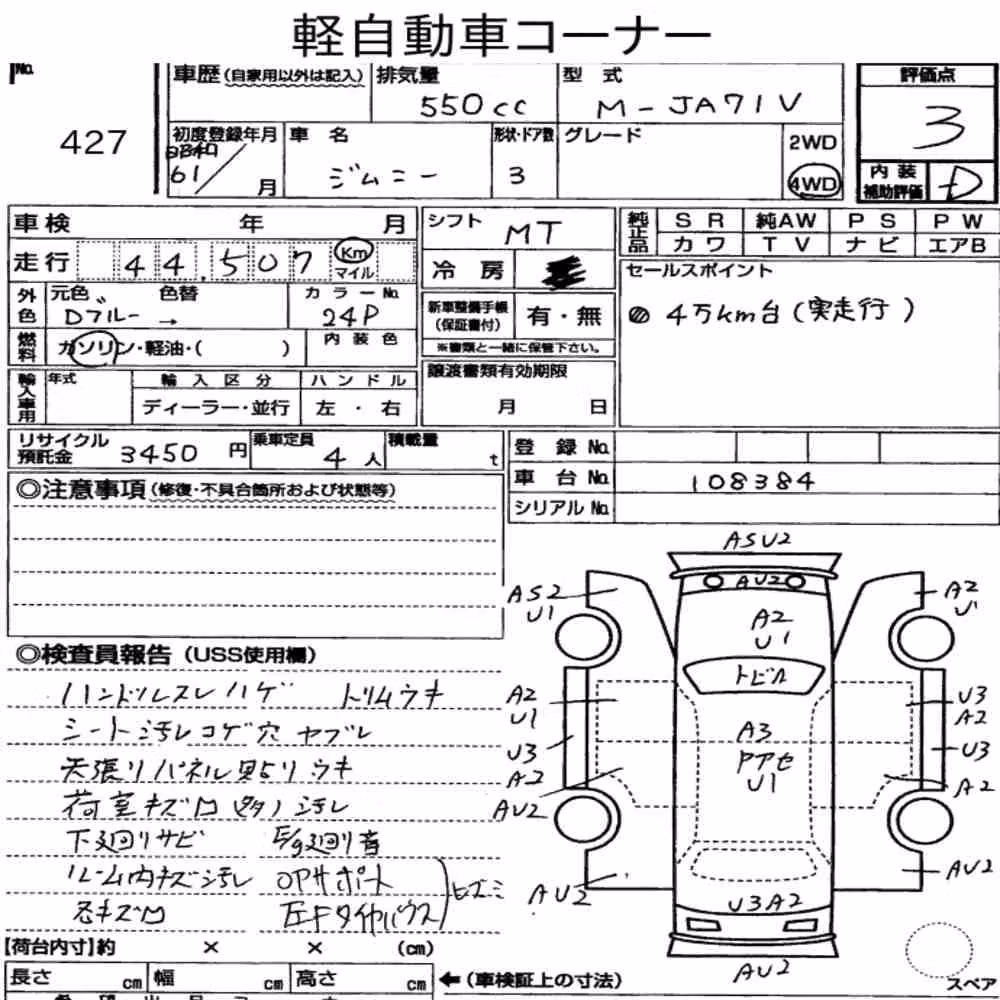 軽自動車コーナー
No. 427
車歴 (自家用以外は記入)
排気量 550cc
型式 M-JA71V
評価点 3
初度登録年月 昭和 61/ 月
車名 ジムニー
形状・ドア数 3
グレード
2WD
4WD
内装補助評価 D
車検 年 月
走行 44.507 Km マイル
シフト MT
冷房
純正品 SR 純AW PS PW
カワ TV ナビ エアB
外色 元色 Dブルー 色替 →
カラーNo. 24P
新車整備手帳 (保証書付) 有・無
※書類と一緒に保管下さい。
セールスポイント
4万km台(実走行)
燃料 ガソリン・軽油・( )
内装色
輸入車用 年式
輸入区分 ディーラー・並行
ハンドル 左・右
譲渡書類有効期限
月 日
リサイクル預託金 3450 円
乗車定員 4人
積載量 t
登録No.
車台No. 108384
シリアルNo.
◎注意事項(修復・不具合箇所および状態等)
◎検査員報告(USS使用欄)
ハンドルスレハゲ トリムウキ
シート汚レコゲ穴ヤブレ
天張リパネル貼リウキ
荷室キズ凹(多)汚レ
下廻リサビ E/g廻リ音
ルーム内キズ汚レ OPサポート
左Fタイヤハウス ヒズミ
ASU2
AU2
AS2 U1
A2 U1
A2 U1
トビル
A2 U1
U3 A2
A3
U3
U3
アアセ U1
A2
A2
AU2
AU2
AU2
U3A2
AU2
スペア
【荷台内寸】約 × × (cm)
長さ cm 幅 cm 高さ cm
←(車検証上の寸法)